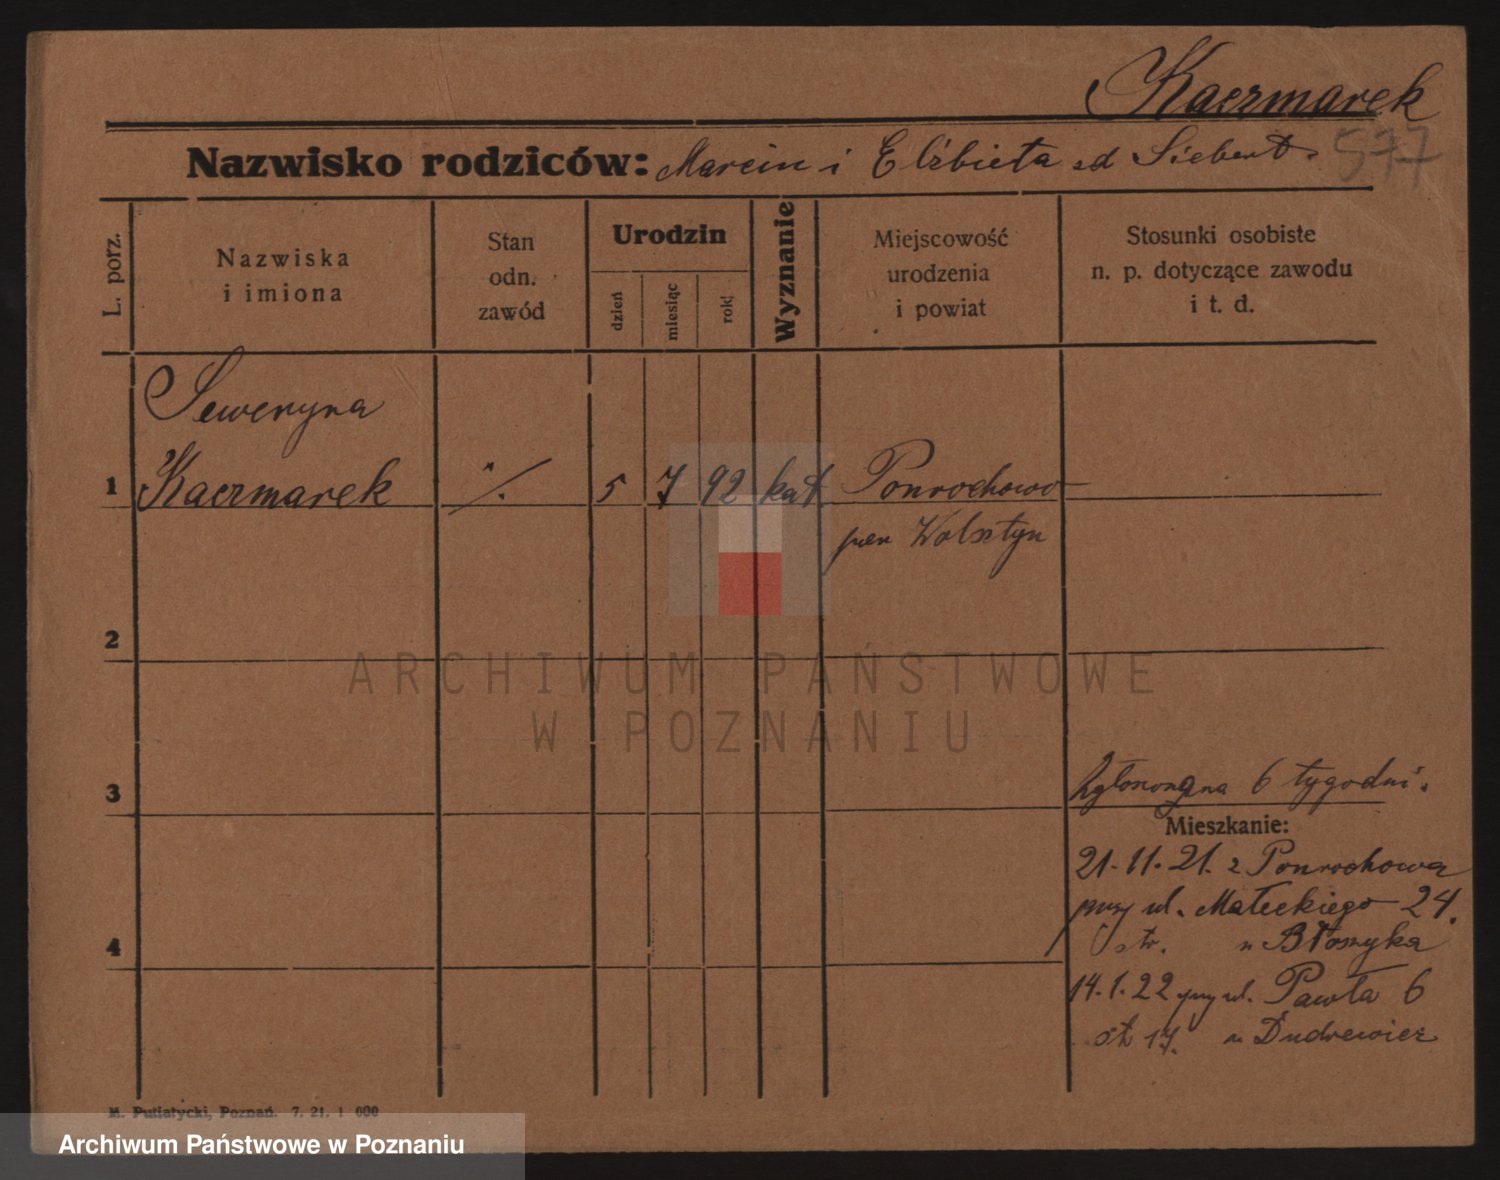 Kaczmarek
577
Nazwisko rodziców: Marcin i Elżbieta zd Siebert.
L. porz.
Nazwiska
i imiona
Stan
odn.
zawód
Urodzin
dzień
miesiąc
rok
Wyznanie
Miejscowość
urodzenia
i powiat
Stosunki osobiste
n. p. dotyczące zawodu
i t. d.
Seweryna
1 Kaczmarek ·/. 5 7 92 kat Ponrochowo
pow Wolsztyn
2
ARCHIWUM PAŃSTWOWE
W POZNANIU
3 6 tygodni.
Mieszkanie:
21.11.21. z Ponrochowa
przy ul. Małeckiego 24.
4 u
14.1.22 przy ul. Pawła 6
17. u
M. Putiatycki, Poznań. 7. 21. 1 000
Archiwum Państwowe w Poznaniu